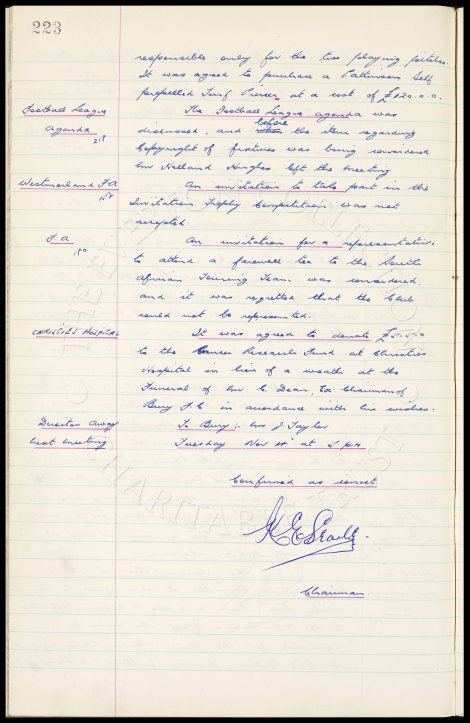 223
responsible only for the two playing pitches.
It was agreed to purchase a Pattinson Self
propelled Turf Piercer at a cost of £120.0.0.
Football League
Agenda
218
The Football League agenda was
discussed, and before the item regarding
Copyright of fixtures was being considered
Mr Holland Hughes left the meeting.
Westmorland F A
An invitation to take part in the
Invitation Trophy Competition was not
accepted.
F. A
190
An invitation for a representative
to attend a farewell tea to the South
African Touring Team was considered
and it was regretted that the Club
could not be represented.
CHRISTIES HOSPITAL
It was agreed to donate £5.5.0
to the Cancer Research Fund at Christies
Hospital in lieu of a wreath at the
Funeral of Mr C Dean, Ex Chairman of
Bury F.C in accordance with his wishes.
Director Away
To Bury :- Mr J Taylor
Next meeting
Tuesday Nov 4th at 5 pm
Confirmed as correct.
Chairman.
THE EVERTON COLLECTION
CHARITABLE TRUST